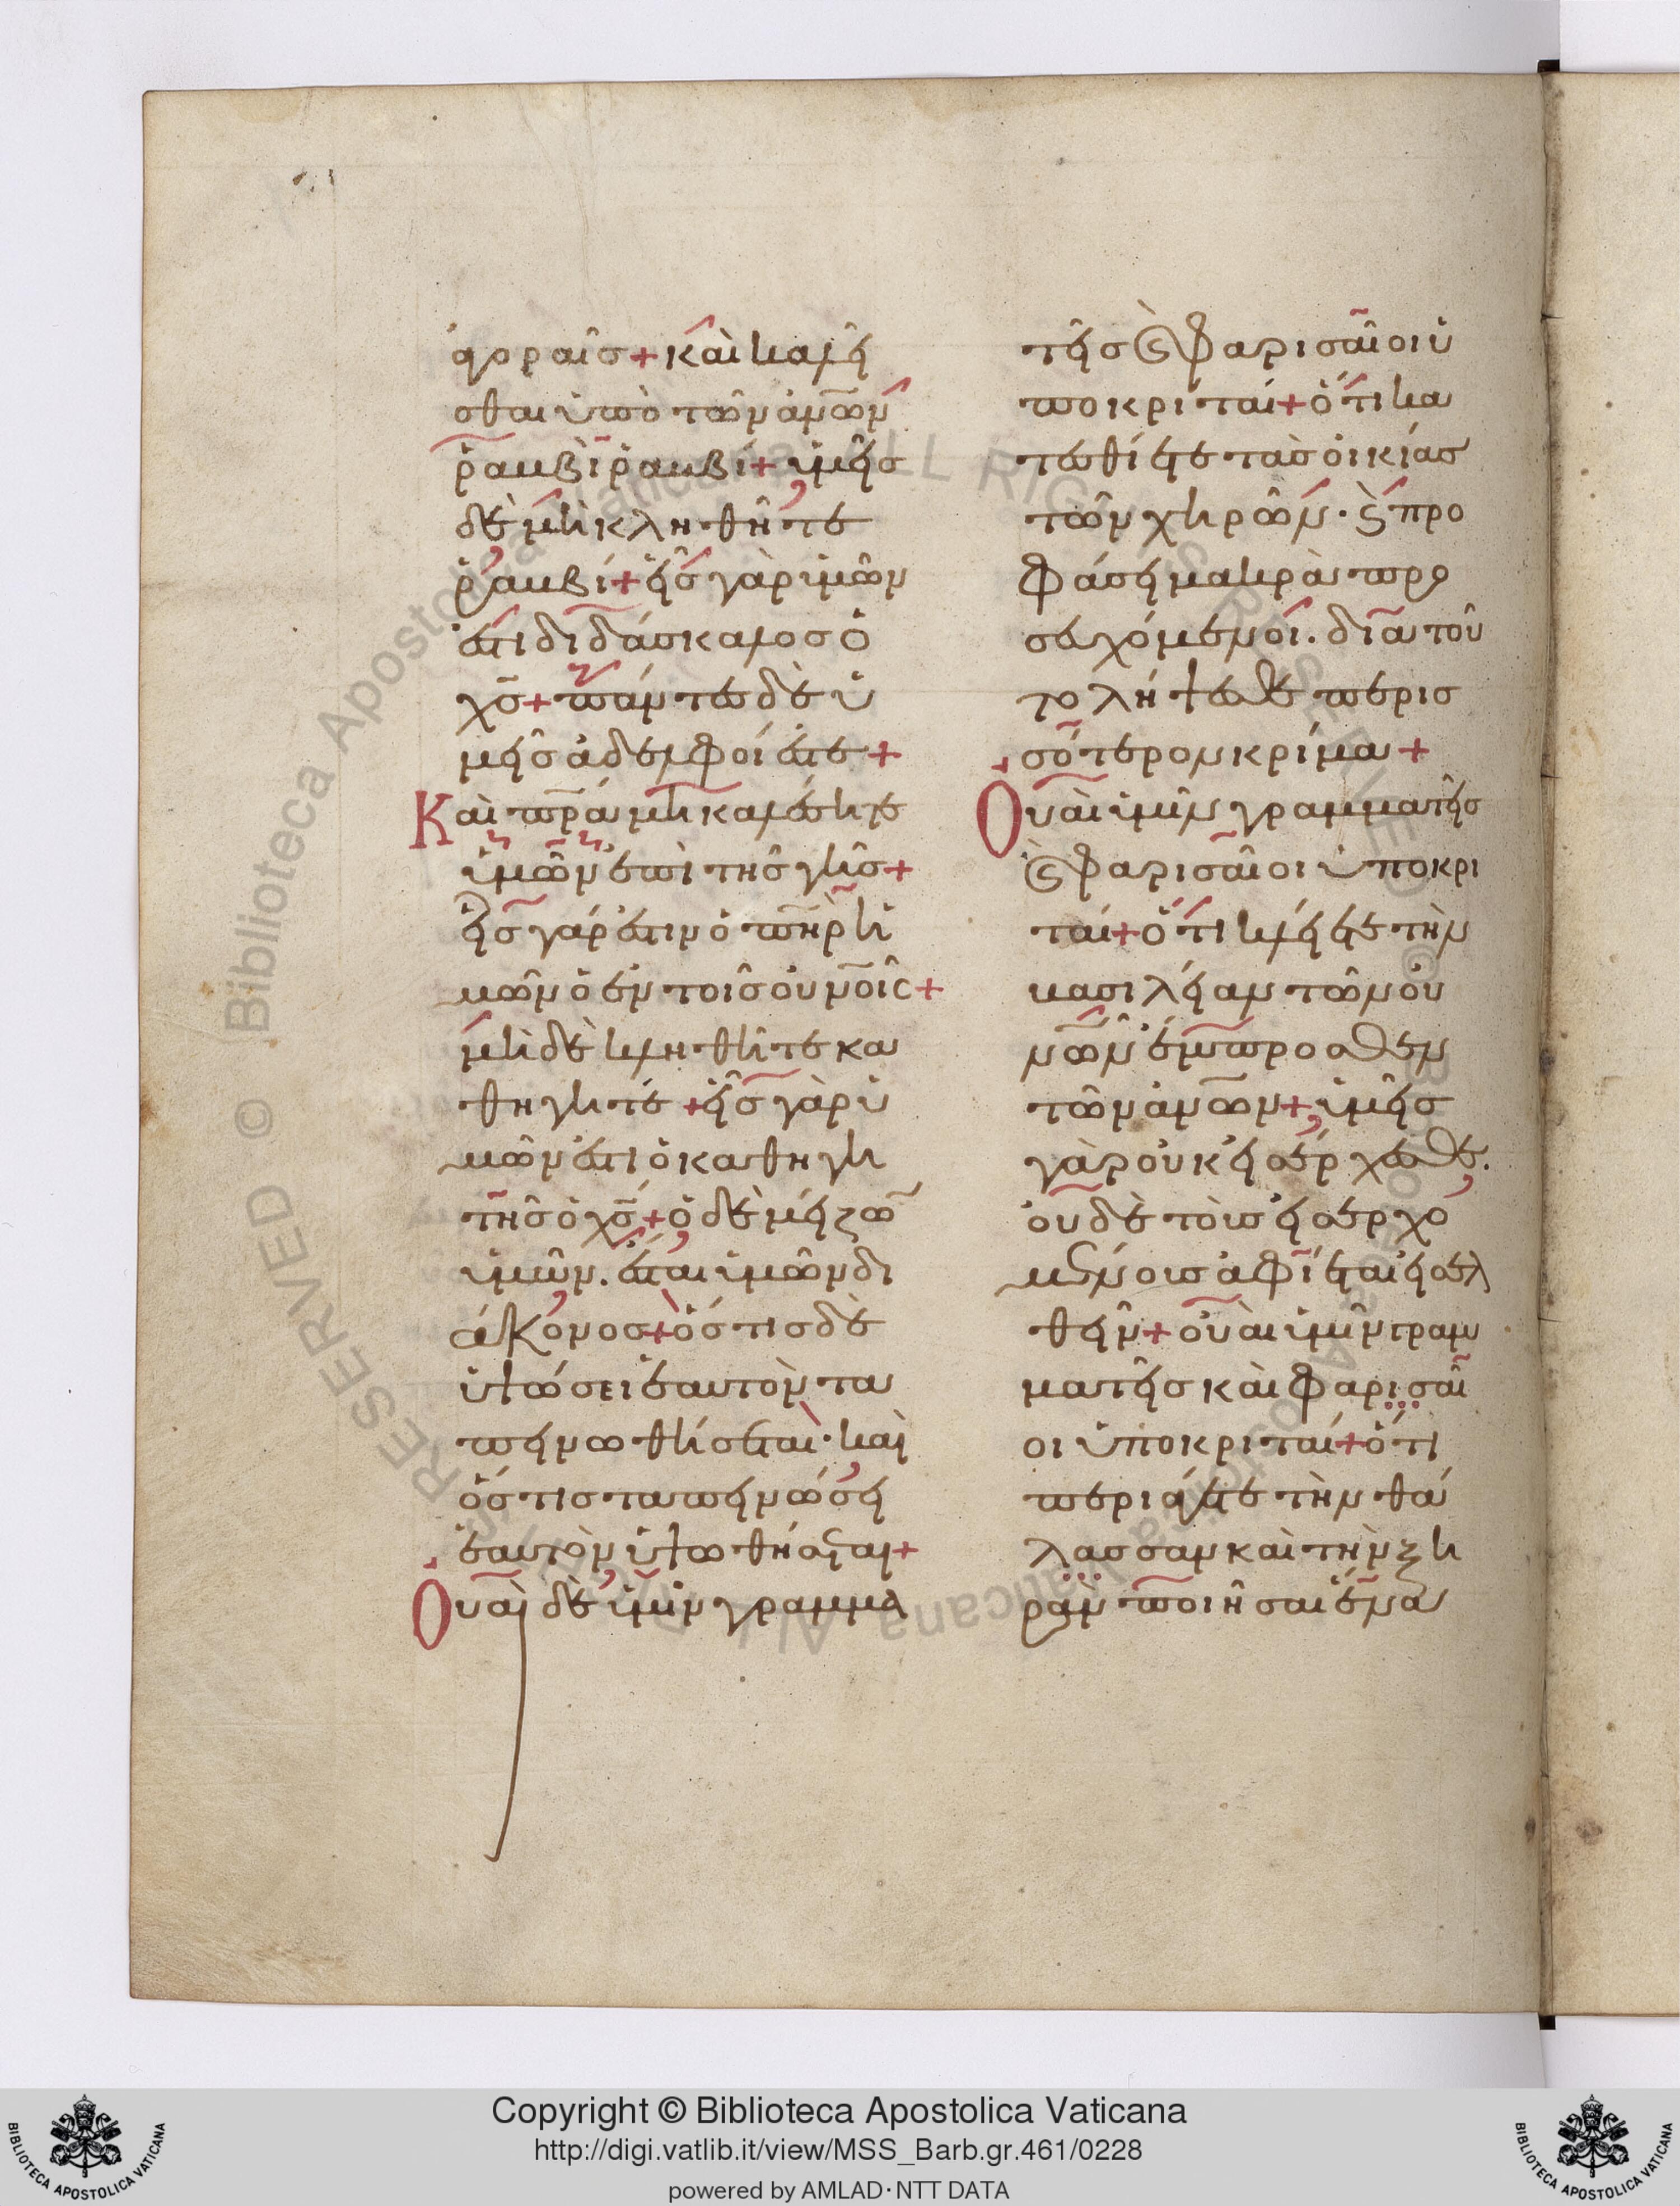 ἀγοραῖσ + καὶ καλεῖ
σθαι ὑπὸ τῶν ἀν̅ω̅ν
ῥαββὶ ῥαββί + ὑμεῖσ
δὲ μὴ κληθῆτε
ῥαββί + εἷσ γὰρ ὑμῶν
ἐστι διδάσκαλοσ ὁ
χ̅σ̅ + πάντεσ δὲ ὑ
μεῖσ ἀδελφοί ἐστε +
Καὶ π̅ρ̅α μὴ καλέσητε
ὑμῶν ἐπὶ τῆσ γῆσ +
εἷσ γάρ ἐστιν ὁ π̅η̅ρ ἡ
μῶν ὁ ἐν τοῖσ οὐν̅οῖσ +
μὴ δὲ κληθῆτε κα
θηγητέ + εἷσ γὰρ ὑ
μῶν ἐστι ὁ καθηγη
τῆσ ὁ χ̅σ̅ + ὁ δὲ μείζω̅
ὑμῶν. ἔσται ὑμῶν δι
άκονοσ + ὅστισ δὲ
ὑψώσει ἑαυτὸν τα
πεινωθήσεται · καὶ
ὅστισ ταπεινώσει
ἑαυτὸν ὑψωθήσεται +
Οὐαὶ δὲ ὑμῖν γραμμα
τεῖσ καὶ φαρισαῖοι ὑ
ποκριταί + ὅτι κα
τεσθίετε τὰσ οἰκίασ
τῶν χηρῶν · καὶ προ
φάσει μακρὰ προ
σευχόμενοι. διὰ τοῦ
το λήψεσθε περισ
σότερον κρίμα +
Οὐαὶ ὑμῖν γραμματεῖσ
καὶ φαρισαῖοι ὑποκρι
ταί + ὅτι κλείετε τὴν
βασιλείαν τῶν οὐ
ν̅ω̅ν ἔμπροσθεν
τῶν ἀν̅ω̅ν + ὑμεῖσ
γὰρ οὐκ εἰσέρχεσθε.
οὐδὲ τοὺσ εἰσερχο
μένουσ ἀφίεται εἰσελ
θεῖν + οὐαὶ ὑμῖν γραμ
ματεῖσ καὶ φαρισαῖ
οι ὑποκριταί + ὅτι
περιάγετε τὴν θά
λασσαν καὶ τὴν ξη
ρὰν ποιῆσαι ἕνα
Copyright © Biblioteca Apostolica Vaticana
http://digi.vatlib.it/view/MSS_Barb.gr.461/0228
powered by AMLAD·NTT DATA